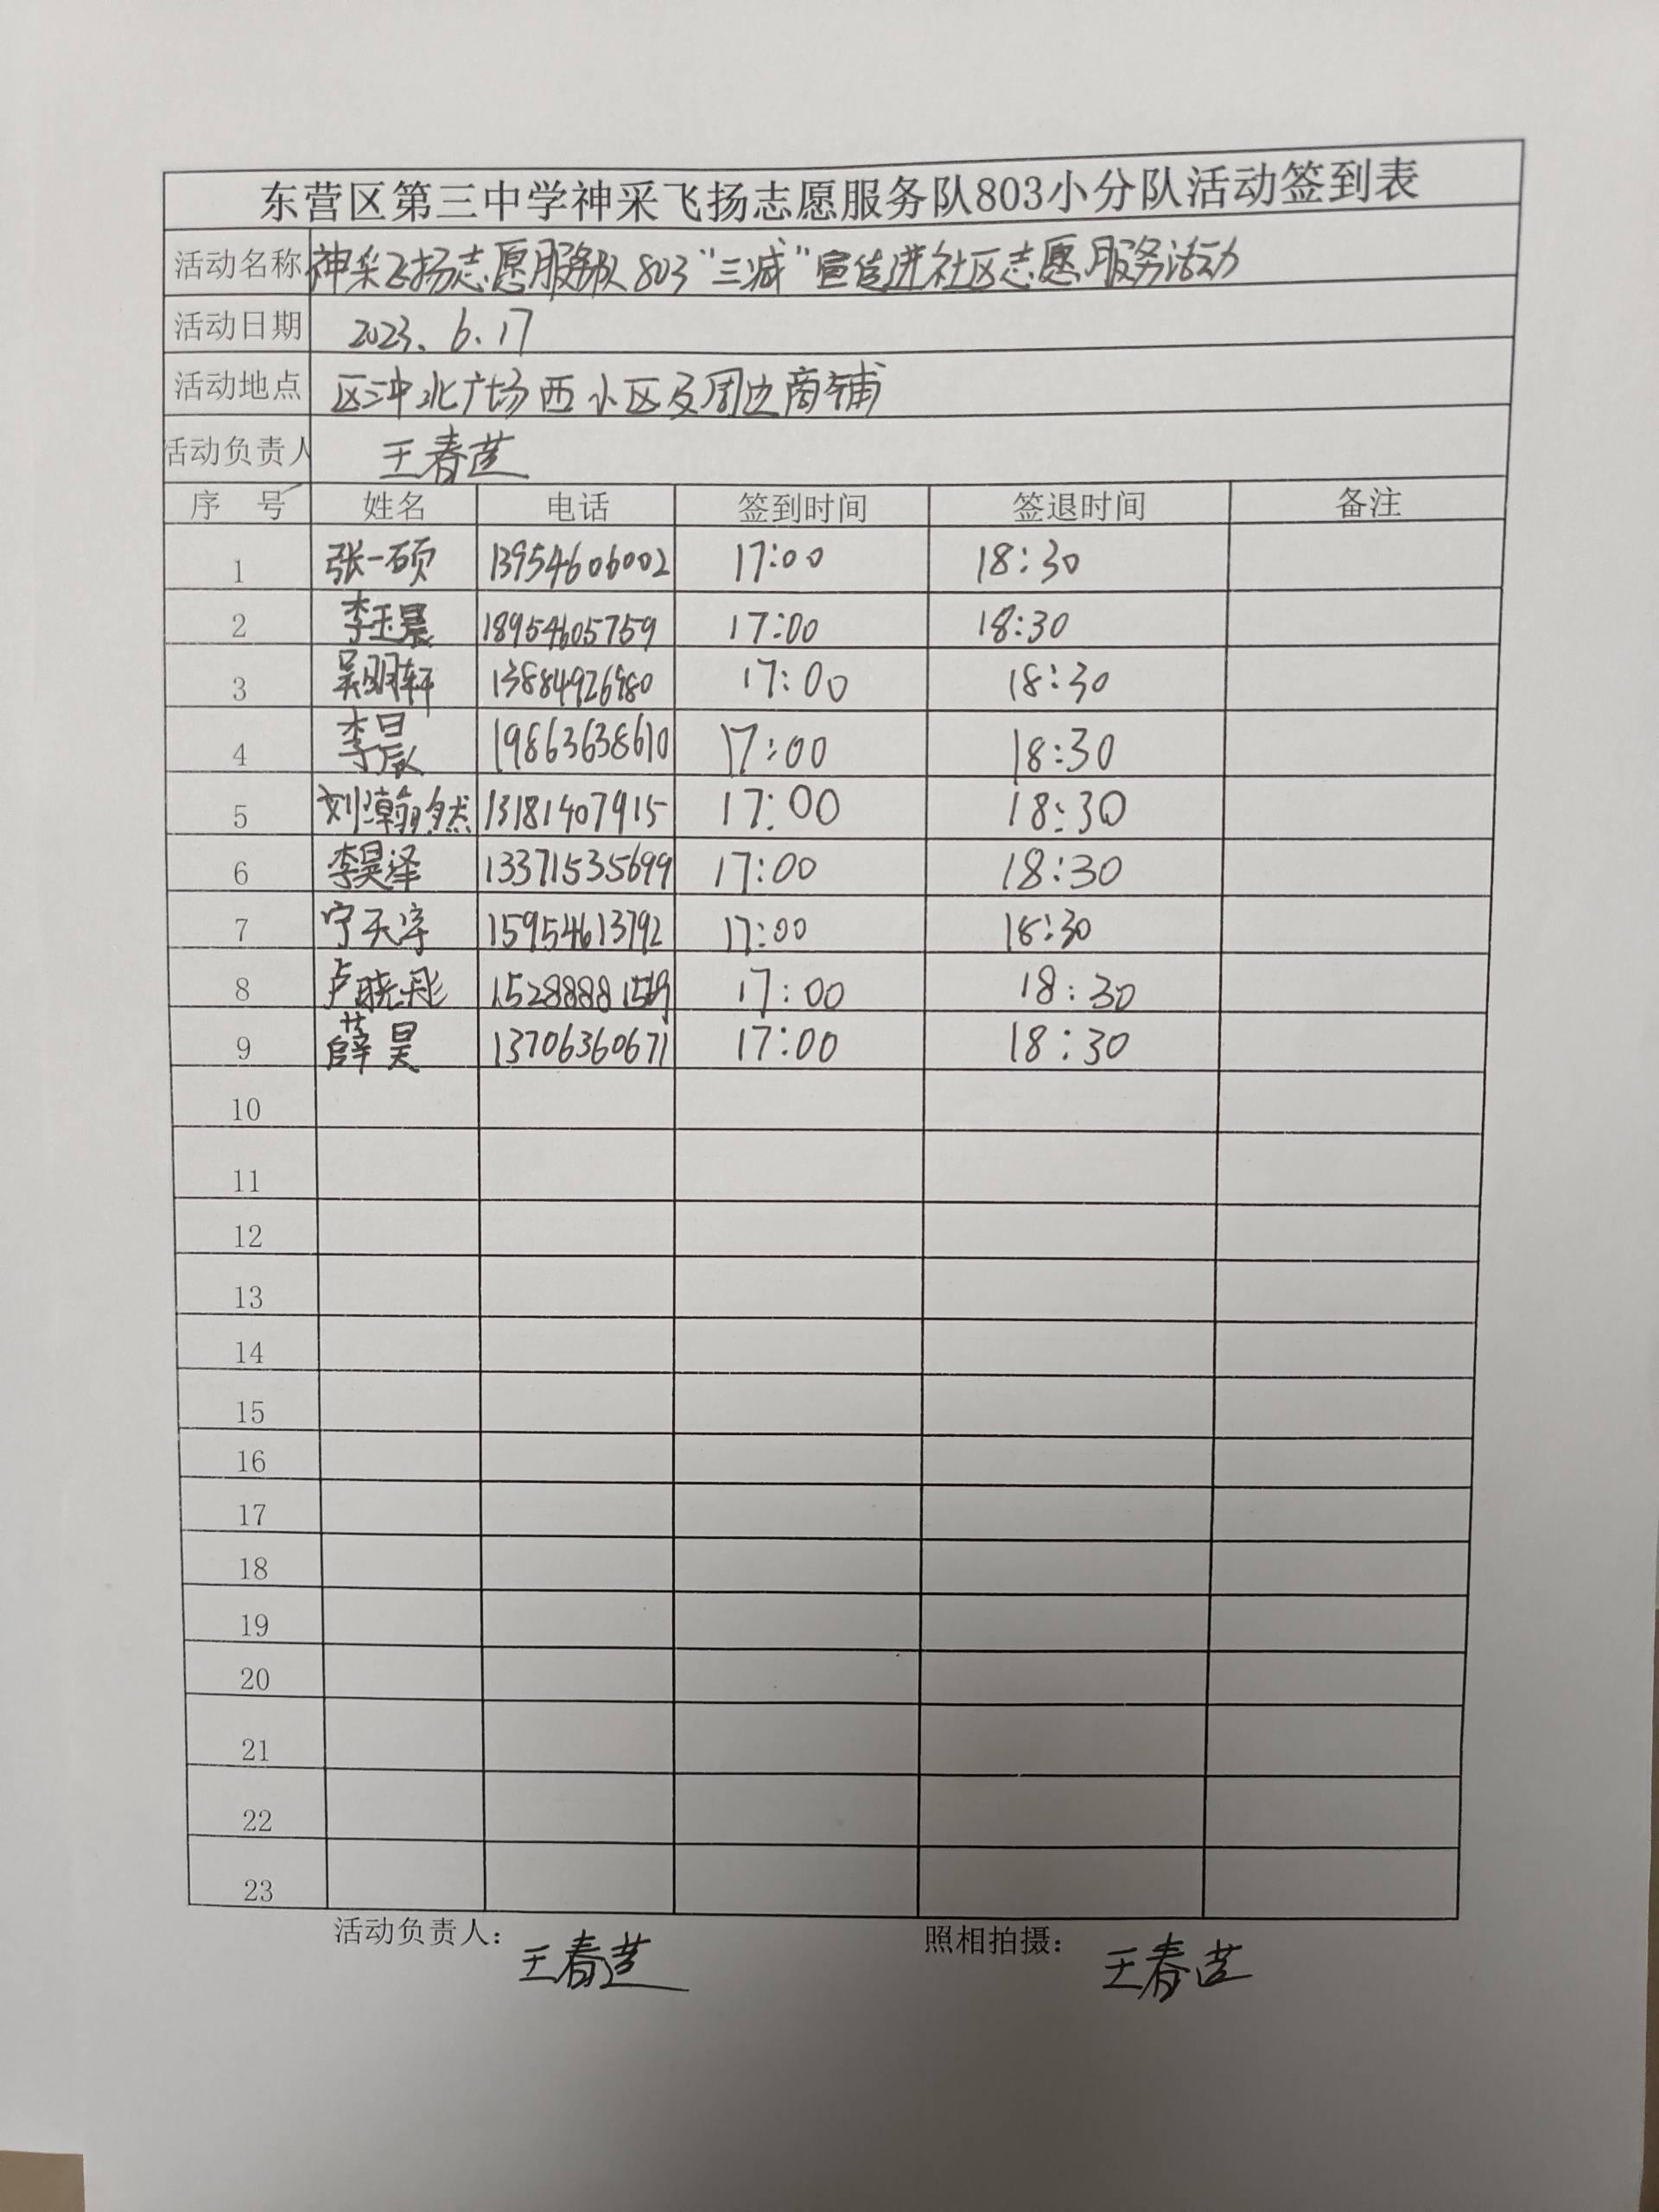 东营区第三中学神采飞扬志愿服务队803小分队活动签到表
活动名称 神采飞扬志愿服务队803“三减”宣传进社区志愿服务活动
活动日期 2023.6.17
活动地点 区三中北广场西小区及周边商铺
活动负责人 王春莲
序 号 姓名 电话 签到时间 签退时间 备注
1 张一硕 13954606002 17:00 18:30
2 李玉晨 18954605759 17:00 18:30
3 吴明轩 13884926980 17:00 18:30
4 李晨 19863638610 17:00 18:30
5 刘瀚然 13181407915 17:00 18:30
6 李昊泽 13371535699 17:00 18:30
7 宁天宇 15954613792 17:00 18:30
8 卢晓彤 17:00 18:30
9 薛昊 13706360671 17:00 18:30
10
11
12
13
14
15
16
17
18
19
20
21
22
23
活动负责人： 王春莲 照相拍摄： 王春莲